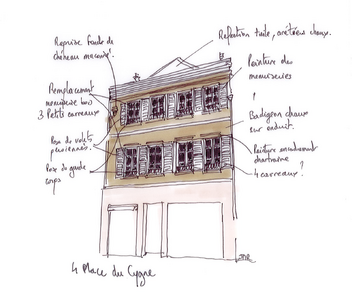 Reprise faîtage
Refection tuile, arêtiers chaux.
Peinture des
menuiseries
Remplacement
menuiserie bois
3 Petits carreaux
!
Badigeon chaux
sur enduit.
Pose de volets
persiennes.
Peinture encadrement
Pose de garde
corps
4 carreaux ?
4 Place du Cygne